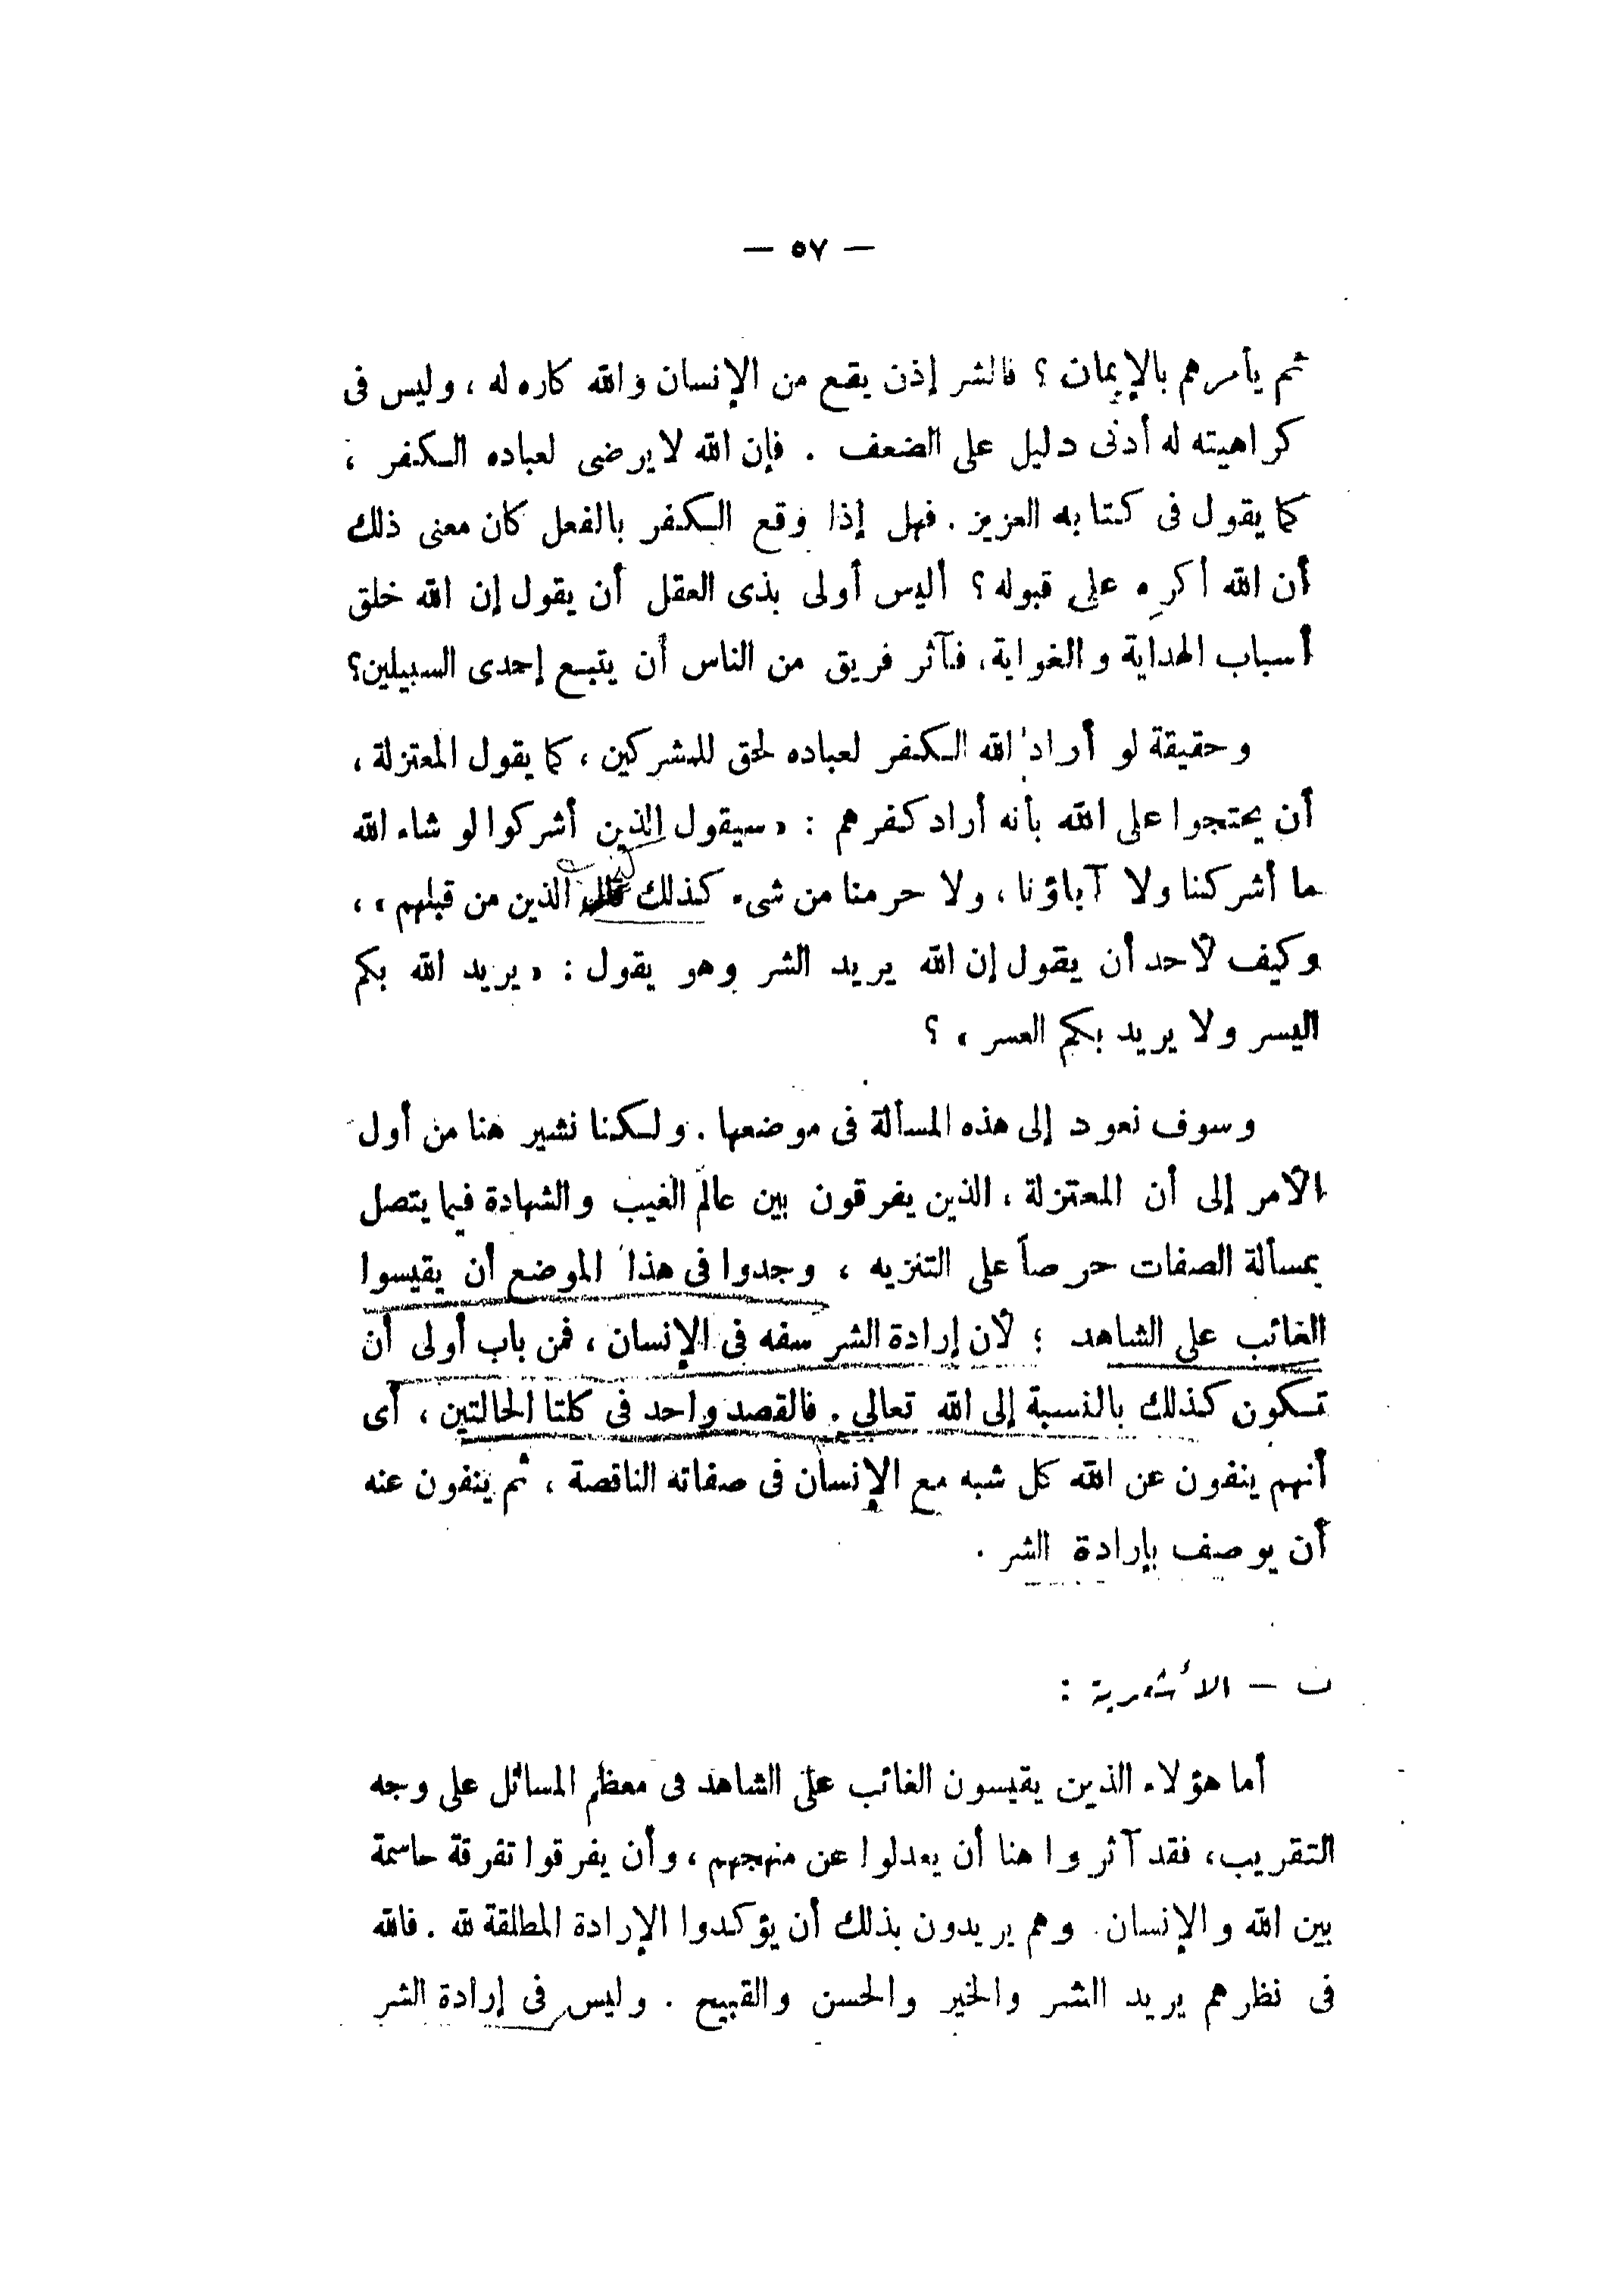 — ٥٧ —
ثم يأمرهم بالإيمان ؟ فالشر إذن يقع من الإنسان والله كاره له ، وليس فى
كراهيته له أدنى دليل على الضعف . فإن الله لا يرضى لعباده الكفر ،
كما يقول فى كتابه العزيز . فهل إذا وقع الكفر بالفعل كان معنى ذلك
أن الله أكره على قبوله ؟ أليس أولى بذى العقل أن يقول إن الله خلق
أسباب الهداية والغواية، فآثر فريق من الناس أن يتبع إحدى السبيلين؟
وحقيقة لو أراد الله الكفر لعباده لحق للمشركين ، كما يقول المعتزلة ،
أن يحتجوا على الله بأنه أراد كفرهم : « سيقول الذين أشركوا لو شاء الله
ما أشركنا ولا آباؤنا ، ولا حرمنا من شىء كذلك كذب الذين من قبلهم » ،
وكيف لأحد أن يقول إن الله يريد الشر وهو يقول : « يريد الله بكم
اليسر ولا يريد بكم العسر » ؟
وسوف نعود إلى هذه المسألة فى موضعها . ولكنا نشير هنا من أول
الأمر إلى أن المعتزلة ، الذين يفرقون بين عالم الغيب والشهادة فيما يتصل
بمسألة الصفات حرصاً على التنزيه ، وجدوا فى هذا الموضع أن يقيسوا
الغائب على الشاهد ؛ لأن إرادة الشر سفه فى الإنسان ، فمن باب أولى أن
تكون كذلك بالنسبة إلى الله تعالى . فالقصد واحد فى كلتا الحالتين ، أى
أنهم ينفون عن الله كل شبه مع الإنسان فى صفاته الناقصة ، ثم ينفون عنه
أن يوصف بإرادة الشر .
ب — الأشعرية :
أما هؤلاء الذين يقيسون الغائب على الشاهد فى معظم المسائل على وجه
التقريب، فقد آثروا هنا أن يعدلوا عن منهجهم ، وأن يفرقوا تفرقة حاسمة
بين الله والإنسان . وهم يريدون بذلك أن يؤكدوا الإرادة المطلقة لله . فالله
فى نظرهم يريد الشر والخير والحسن والقبيح . وليس فى إرادة الشر